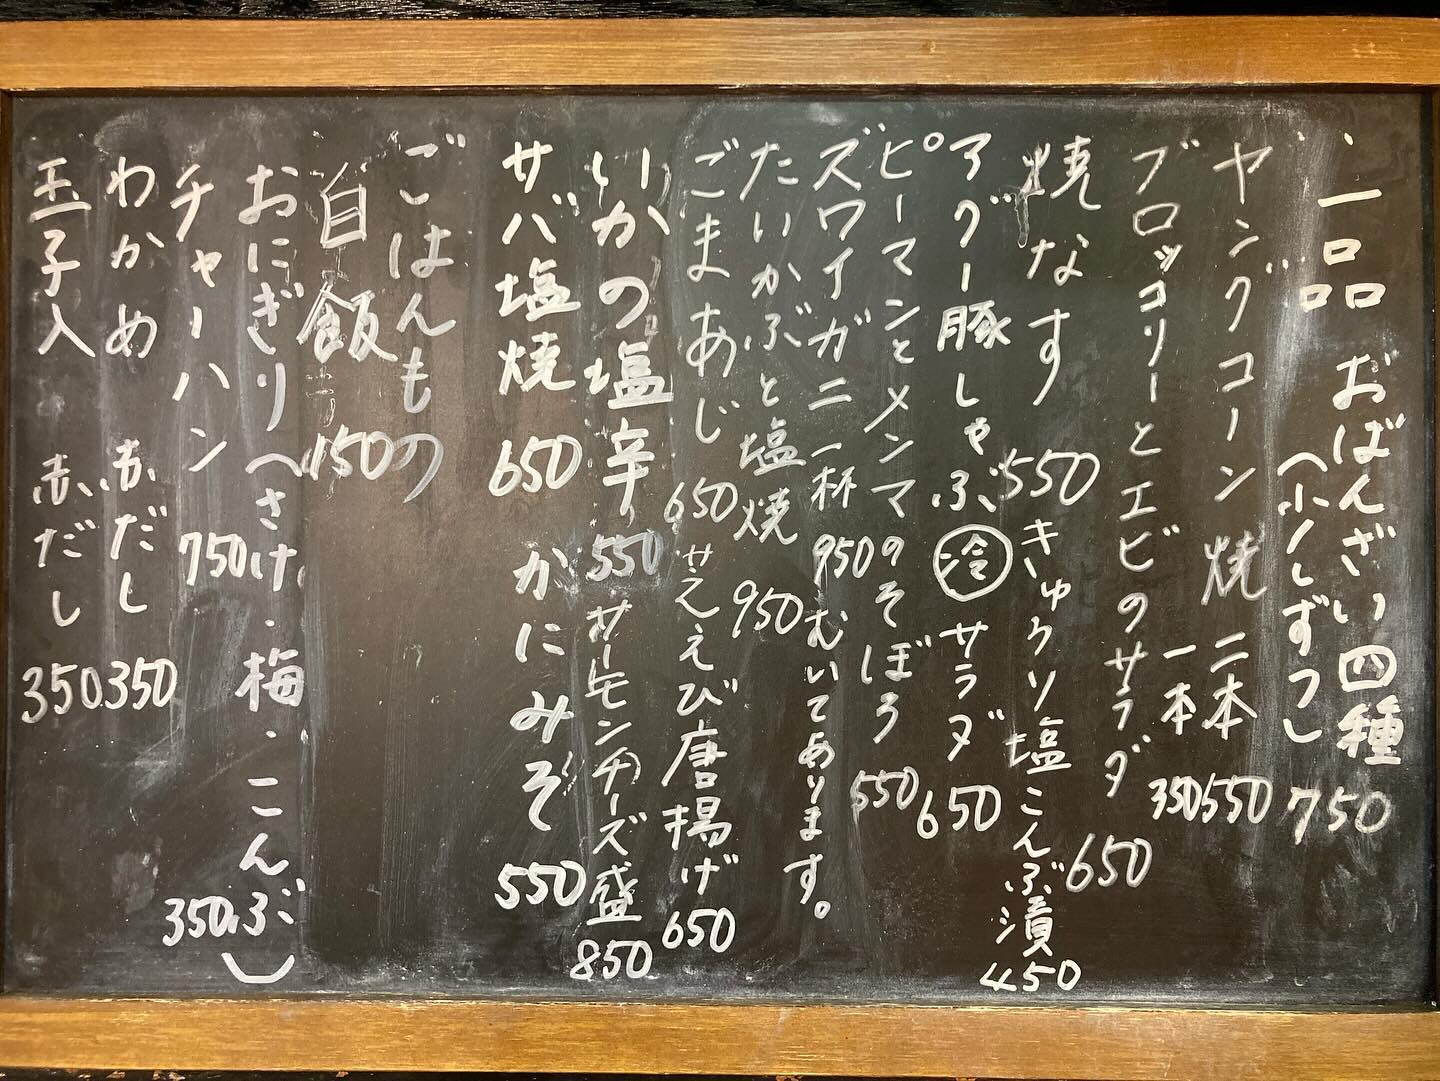 一品 おばんざい四種
（少しずつ） 750
ヤングコーン焼 二本 550
一本 350
ブロッコリーとエビのサラダ 650
焼なす 550
きゅうり塩こんぶ漬 450
アグー豚しゃぶ 冷 サラダ 650
ピーマンとメンマのそぼろ 550
ズワイガニ一杯 950
むいてあります。
たいかぶと塩焼 950
ごまあじ 650
甘えび唐揚げ 650
いかの塩辛 550
サーモンチーズ盛 850
サバ塩焼 650
かにみそ 550
ごはんもの
白飯 150
おにぎり（さけ・梅・こんぶ） 350
チャーハン 750
わかめ 赤だし 350
玉子入 赤だし 350